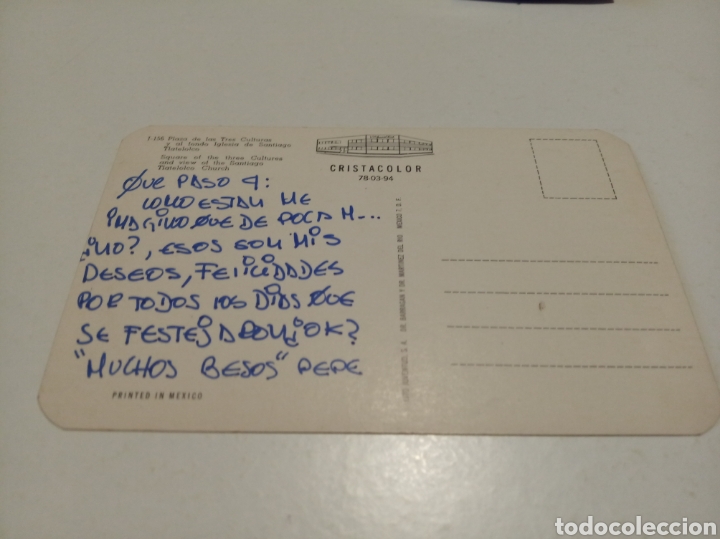 Plaza de las Tres Culturas
y al fondo Iglesia de Santiago
Tlatelolco
Square of the three Cultures
and view of the Santiago
Tlatelolco Church
CRISTACOLOR
78-03-94
QUE PASO 4:
COMO ESTAN ME
IMAGINO QUE DE POCA M...
¿NO?, ESOS SON MIS
DESEOS, FELICIDADES
POR TODOS LOS DIAS QUE
SE FESTEJARON ¿OK?
"MUCHOS BESOS" PEPE
PRINTED IN MEXICO
S. A. DR. BARRAGAN Y DR. MARTINEZ DEL RIO MEXICO 7, D. F.
todocoleccion